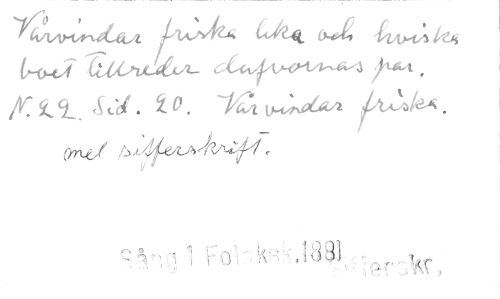 Vårvindar friska leka och hviska
boet tillreder dufvornas par.
N. 22. Sid. 20. Vårvindar friska.
mel sifferskrift.
Sång 1 Folksk. 1881 sifferskr.